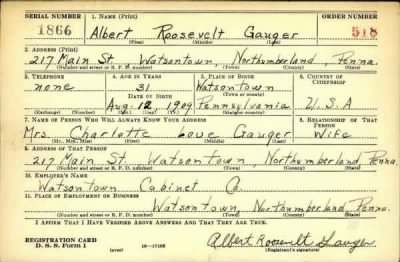 SERIAL NUMBER 1. NAME (Print) ORDER NUMBER
1866 Albert Roosevelt Gauger 518
(First) (Middle) (Last)
2. ADDRESS (Print)
217 Main St. Watsontown, Northumberland, Penna.
(Number and street or R. F. D. number) (Town) (County) (State)
3. TELEPHONE 4. AGE IN YEARS 5. PLACE OF BIRTH 6. COUNTRY OF CITIZENSHIP
none 31 Watsontown
DATE OF BIRTH (Town or county)
Aug. 12, 1909 Pennsylvania U.S.A
(Exchange) (Number) (Mo.) (Day) (Yr.) (State or country)
7. NAME OF PERSON WHO WILL ALWAYS KNOW YOUR ADDRESS 8. RELATIONSHIP OF THAT PERSON
Mrs. Charlotte Love Gauger Wife
(Mr., Mrs., Miss) (First) (Middle) (Last)
9. ADDRESS OF THAT PERSON
217 Main St. Watsontown, Northumberland, Penna.
(Number and street or R. F. D. number) (Town) (County) (State)
10. EMPLOYER'S NAME
Watsontown Cabinet Co.
11. PLACE OF EMPLOYMENT OR BUSINESS
Watsontown, Northumberland, Penna.
(Number and street or R. F. D. number) (Town) (County) (State)
I AFFIRM THAT I HAVE VERIFIED ABOVE ANSWERS AND THAT THEY ARE TRUE.
REGISTRATION CARD
D. S. S. Form 1 (over) 16-17105 Albert Roosevelt Gauger
(Registrant's signature)